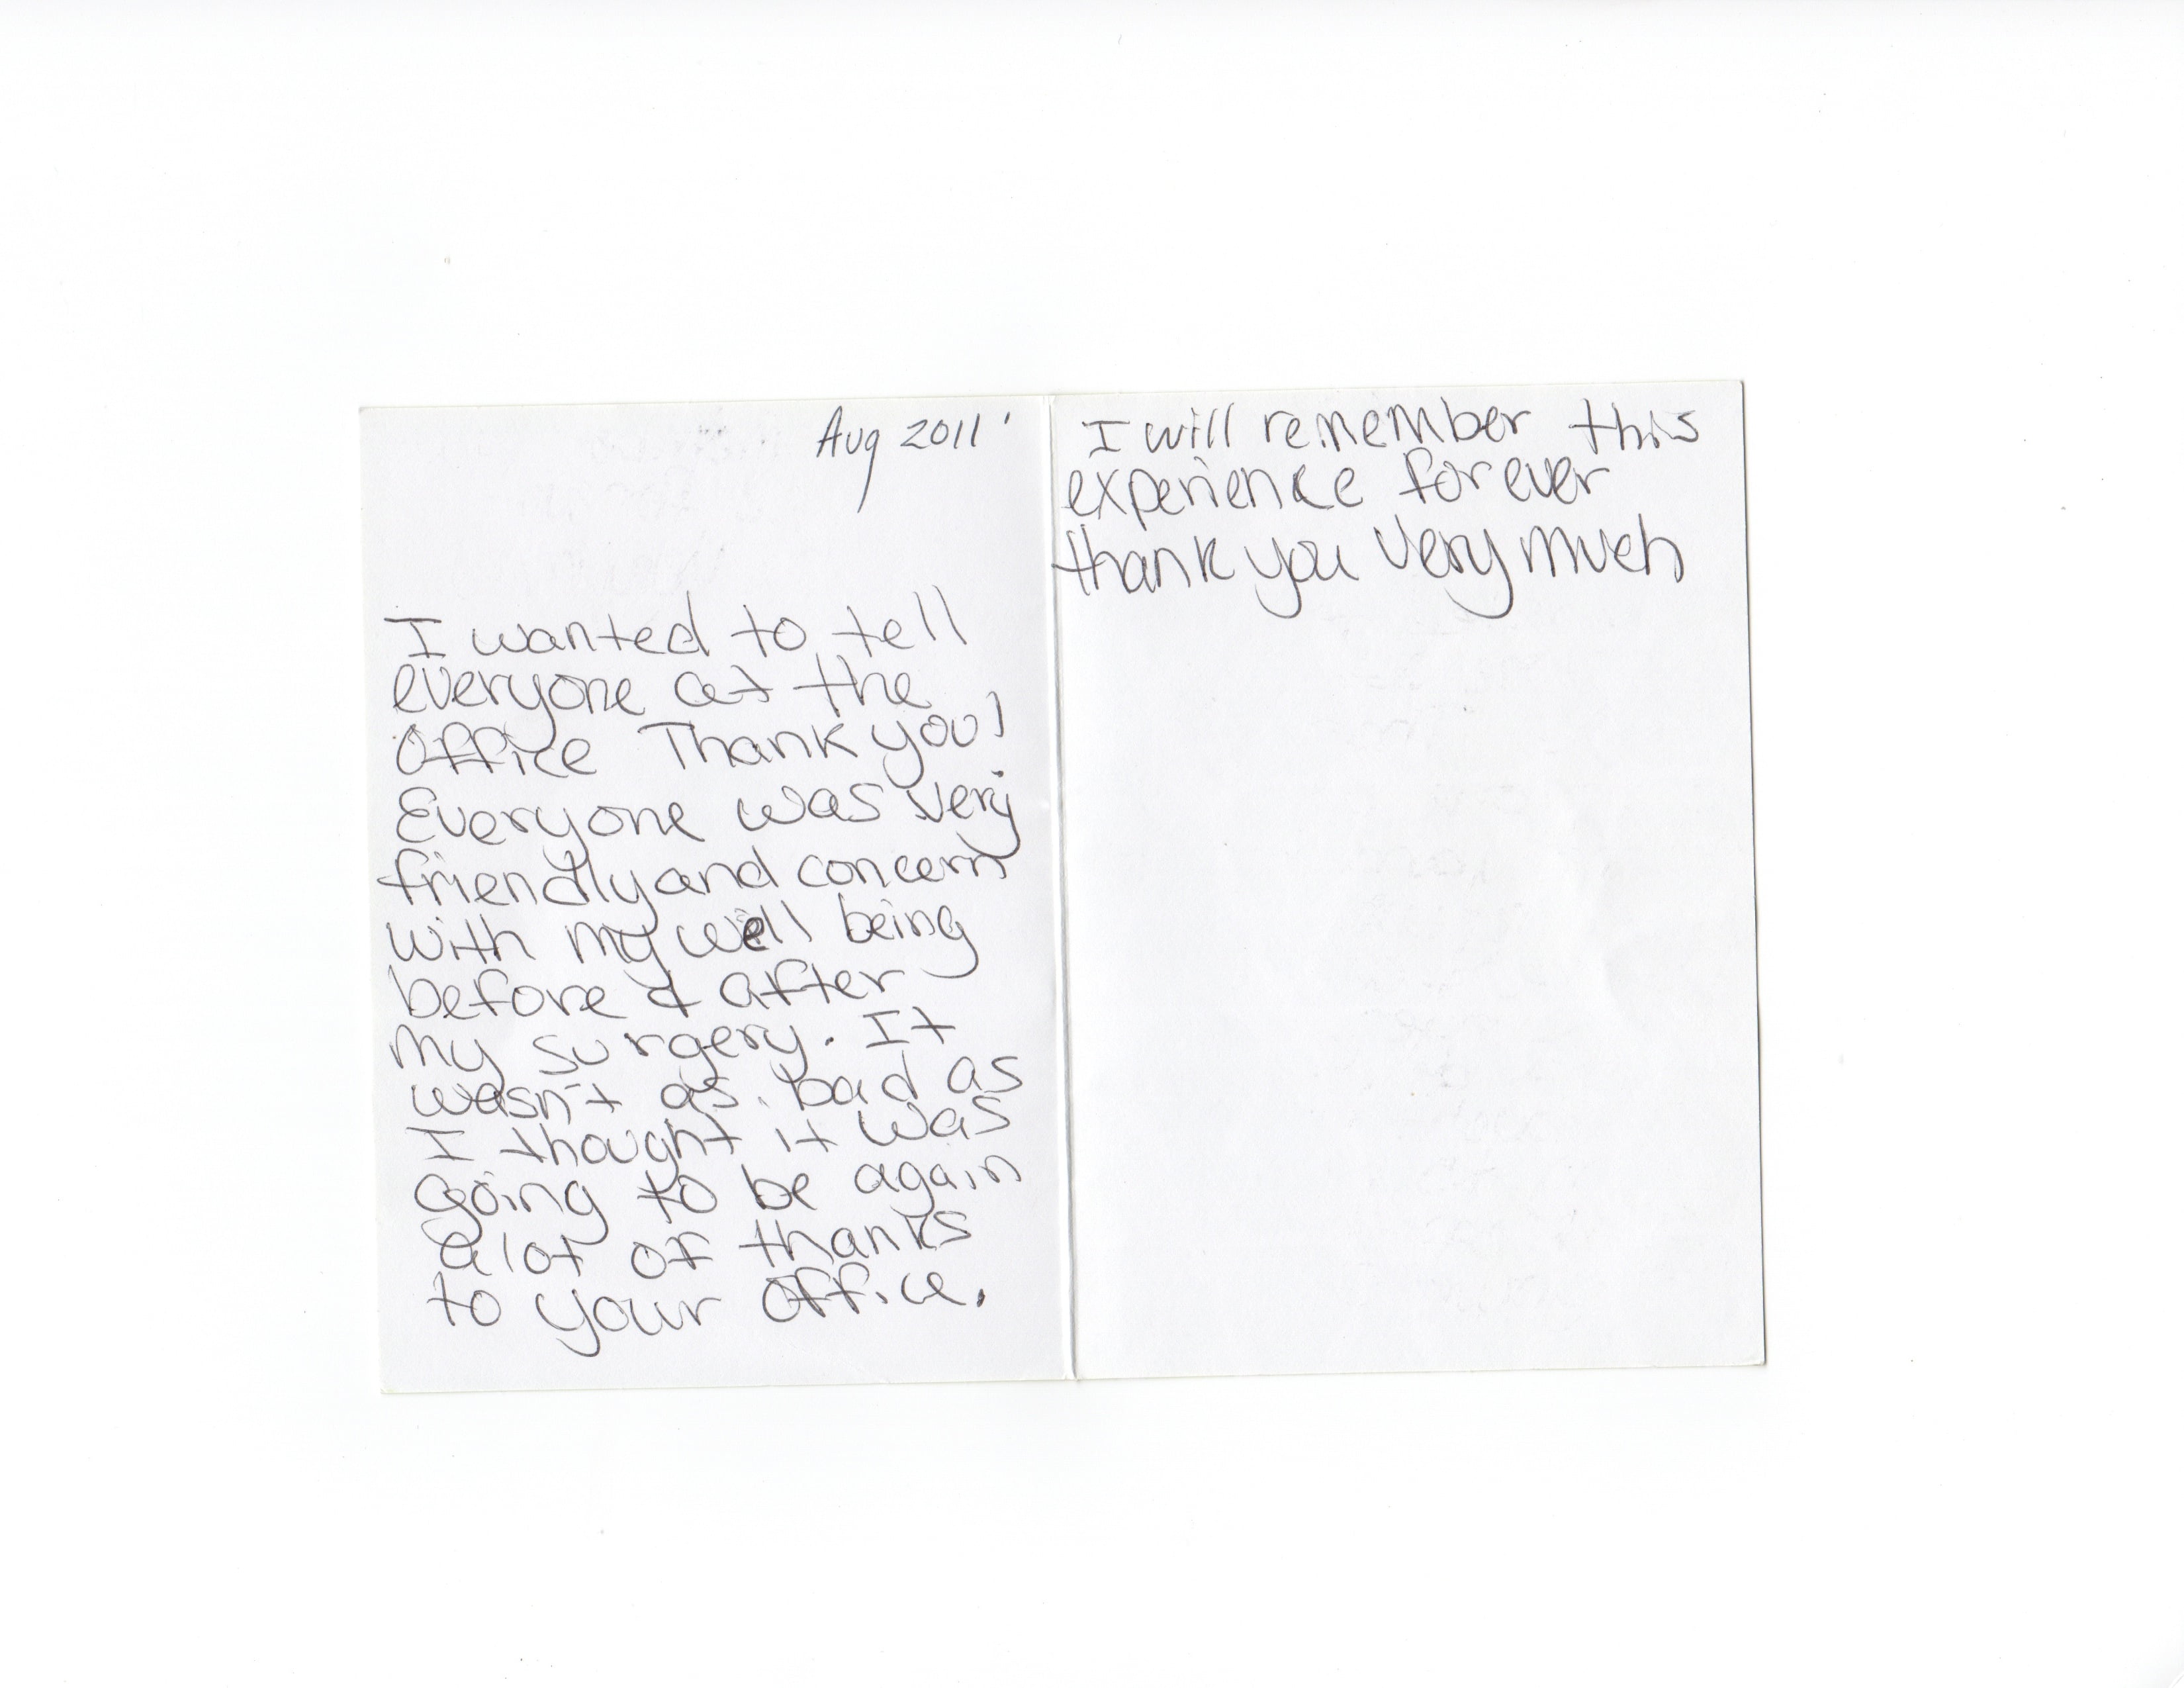 Aug 2011'
I wanted to tell
everyone at the
office Thank you!
Everyone was very
friendly and concern
with my well being
before & after
my surgery. It
wasn't as bad as
I thought it was
going to be again
alot of thanks
to your office.
I will remember this
experience forever
thank you very much